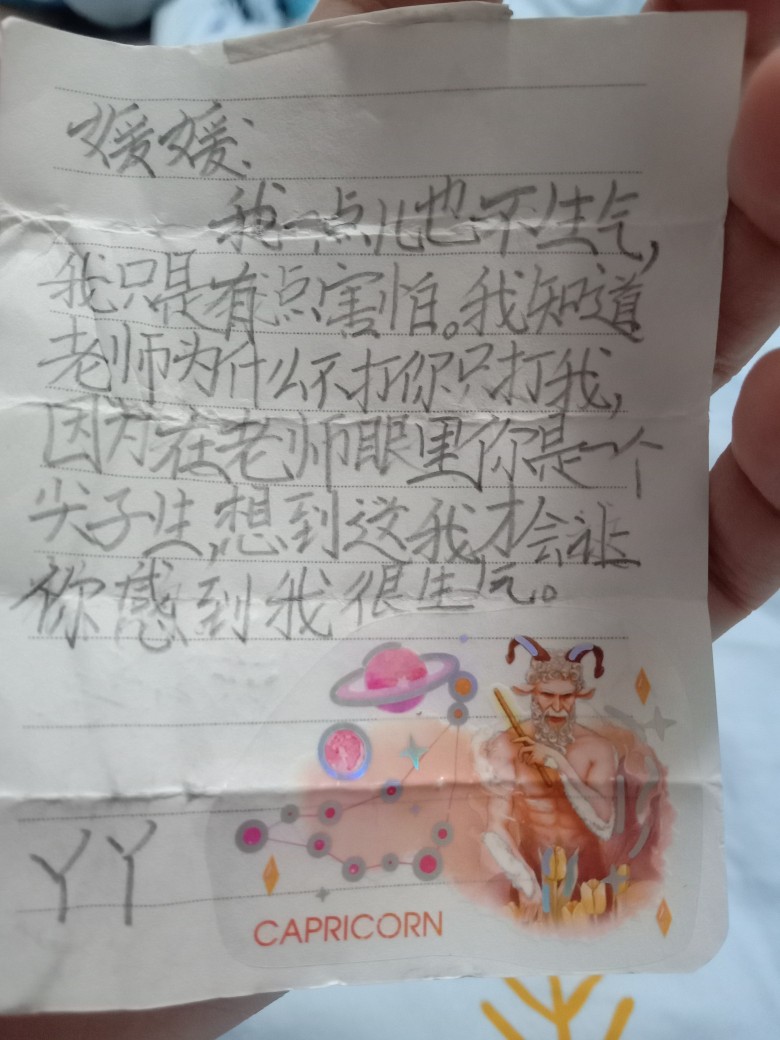 媛媛:
我一点儿也不生气,
我只是有点害怕。我知道
老师为什么不打你只打我,
因为在老师眼里你是一个
尖子生,想到这我才会让
你感到我很生气。
丫丫
CAPRICORN